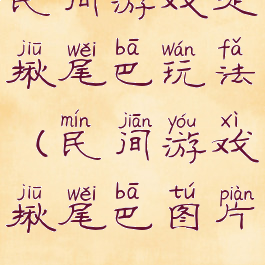 民间游戏是
jiū wěi bā wán fǎ
揪尾巴玩法
mín jiān yóu xì
（民间游戏
jiū wěi bā tú piàn
揪尾巴图片